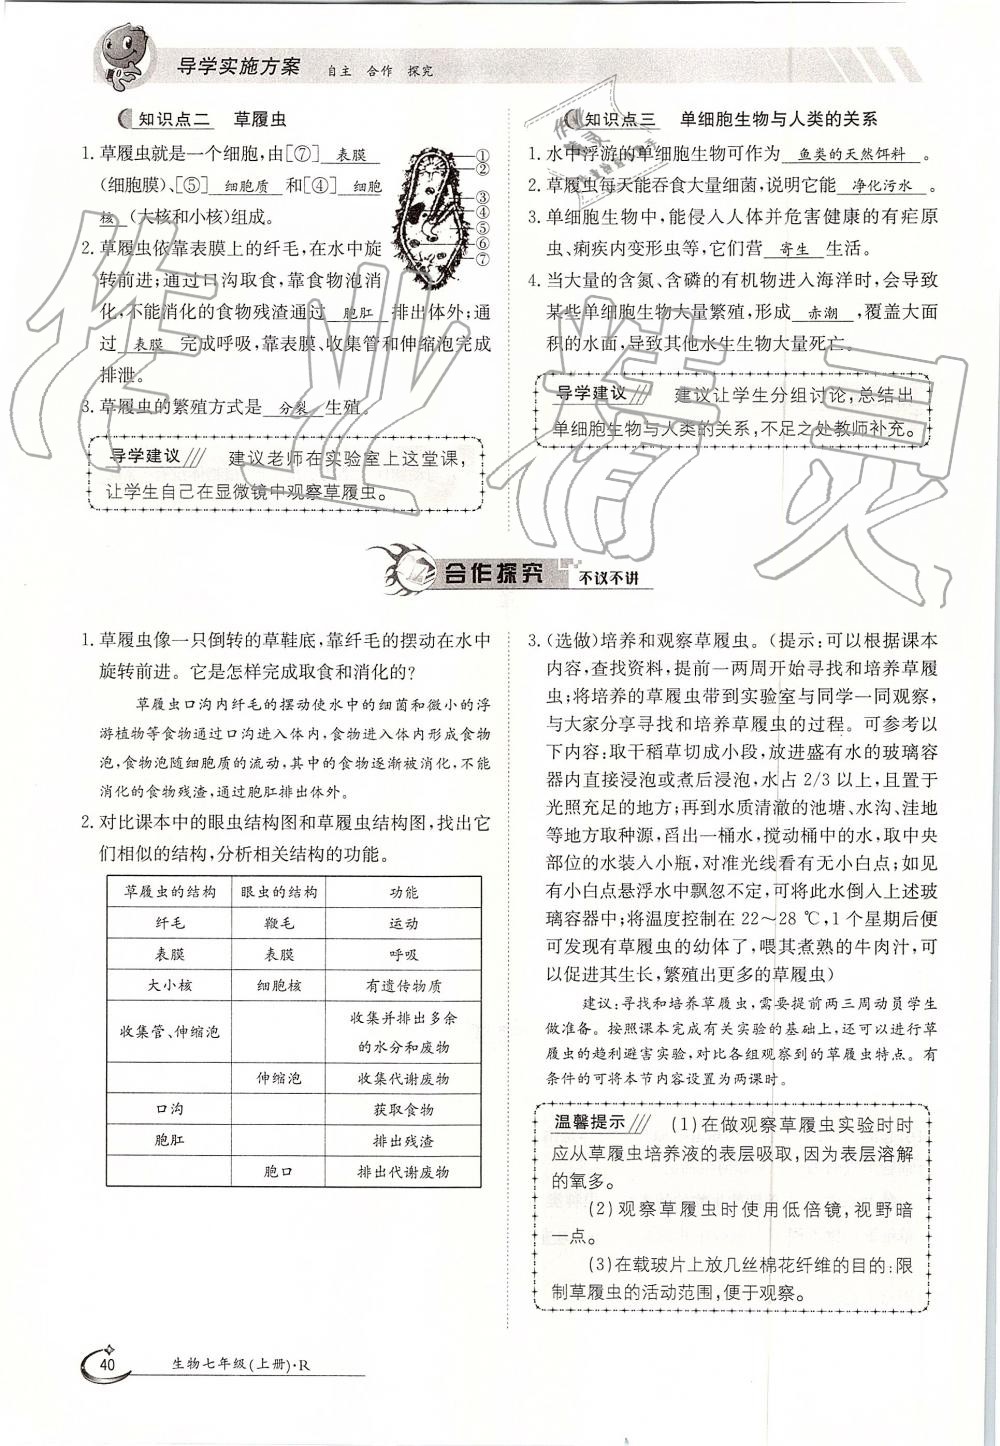 导学实施方案 自主 合作 探究
知识点二 草履虫
1. 草履虫就是一个细胞,由[⑦] 表膜
(细胞膜)、[⑤] 细胞质 和[④] 细胞
核 (大核和小核)组成。
2. 草履虫依靠表膜上的纤毛,在水中旋
转前进;通过口沟取食,靠食物泡消
化,不能消化的食物残渣通过 胞肛 排出体外;通
过 表膜 完成呼吸,靠表膜、收集管和伸缩泡完成
排泄。
3. 草履虫的繁殖方式是 分裂 生殖。
①
②
③
④
⑤
⑥
⑦
导学建议 建议老师在实验室上这堂课,
让学生自己在显微镜中观察草履虫。
知识点三 单细胞生物与人类的关系
1. 水中浮游的单细胞生物可作为 鱼类的天然饵料 。
2. 草履虫每天能吞食大量细菌,说明它能 净化污水 。
3. 单细胞生物中,能侵入人体并危害健康的有疟原
虫、痢疾内变形虫等,它们营 寄生 生活。
4. 当大量的含氮、含磷的有机物进入海洋时,会导致
某些单细胞生物大量繁殖,形成 赤潮 ,覆盖大面
积的水面,导致其他水生生物大量死亡。
导学建议 建议让学生分组讨论,总结出
单细胞生物与人类的关系,不足之处教师补充。
作业精灵
合作探究 不议不讲
1. 草履虫像一只倒转的草鞋底,靠纤毛的摆动在水中
旋转前进。它是怎样完成取食和消化的?
草履虫口沟内纤毛的摆动使水中的细菌和微小的浮
游植物等食物通过口沟进入体内,食物进入体内形成食物
泡,食物泡随细胞质的流动,其中的食物逐渐被消化,不能
消化的食物残渣,通过胞肛排出体外。
2. 对比课本中的眼虫结构图和草履虫结构图,找出它
们相似的结构,分析相关结构的功能。
草履虫的结构 眼虫的结构 功能
纤毛 鞭毛 运动
表膜 表膜 呼吸
大小核 细胞核 有遗传物质
收集管、伸缩泡 收集并排出多余
的水分和废物
伸缩泡 收集代谢废物
口沟 获取食物
胞肛 排出残渣
胞口 排出代谢废物
3. (选做)培养和观察草履虫。(提示:可以根据课本
内容,查找资料,提前一两周开始寻找和培养草履
虫;将培养的草履虫带到实验室与同学一同观察,
与大家分享寻找和培养草履虫的过程。可参考以
下内容:取干稻草切成小段,放进盛有水的玻璃容
器内直接浸泡或煮后浸泡,水占2/3以上,且置于
光照充足的地方;再到水质清澈的池塘、水沟、洼地
等地方取种源,舀出一桶水,搅动桶中的水,取中央
部位的水装入小瓶,对准光线看有无小白点;如见
有小白点悬浮水中飘忽不定,可将此水倒人上述玻
璃容器中;将温度控制在22~28 ℃,1个星期后便
可发现有草履虫的幼体了,喂其煮熟的牛肉汁,可
以促进其生长,繁殖出更多的草履虫)
建议:寻找和培养草履虫,需要提前两三周动员学生
做准备。按照课本完成有关实验的基础上,还可以进行草
履虫的趋利避害实验,对比各组观察到的草履虫特点。有
条件的可将本节内容设置为两课时。
温馨提示 (1)在做观察草履虫实验时时
应从草履虫培养液的表层吸取,因为表层溶解
的氧多。
(2)观察草履虫时使用低倍镜,视野暗
一点。
(3)在载玻片上放几丝棉花纤维的目的:限
制草履虫的活动范围,便于观察。
40 生物七年级(上册)·R